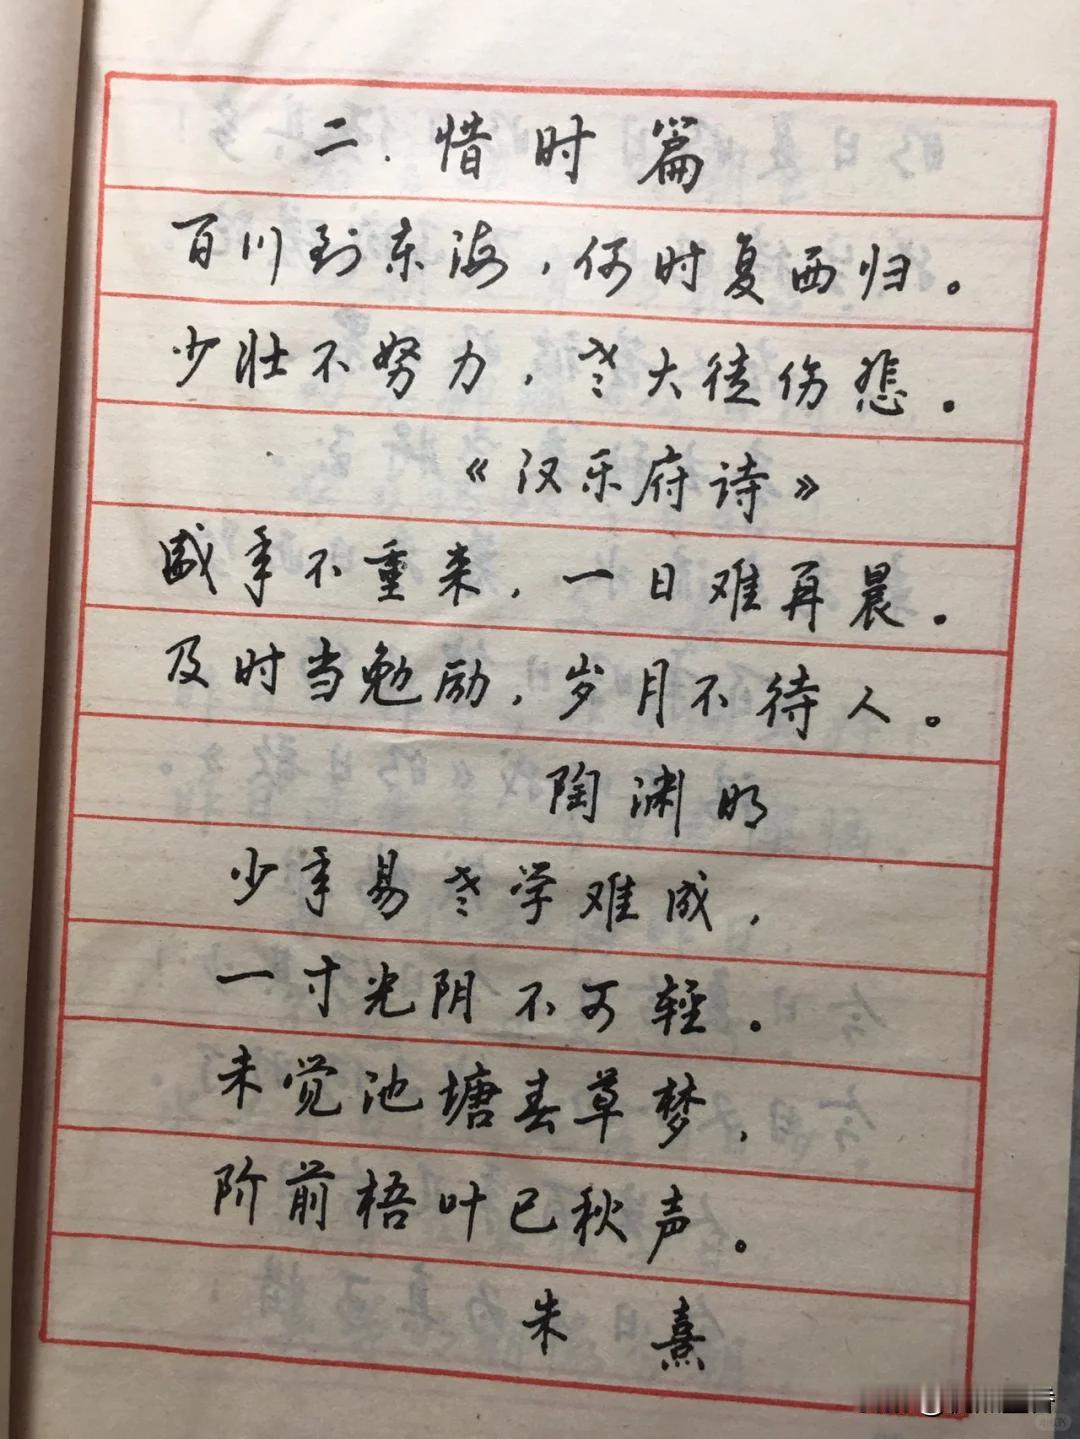 二.惜时篇
百川到东海,何时复西归。
少壮不努力,老大徒伤悲。
《汉乐府诗》
盛年不重来,一日难再晨。
及时当勉励,岁月不待人。
陶渊明
少年易老学难成,
一寸光阴不可轻。
未觉池塘春草梦,
阶前梧叶已秋声。
朱熹